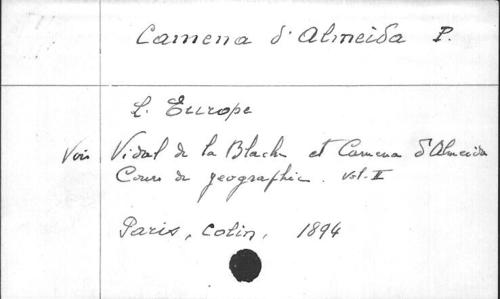 Camena d'Almeida P.
L'Europe
Voir Vidal de la Blache et Camena d'Almeida
Cours de geographie. Vol. II
Paris, Colin, 1894